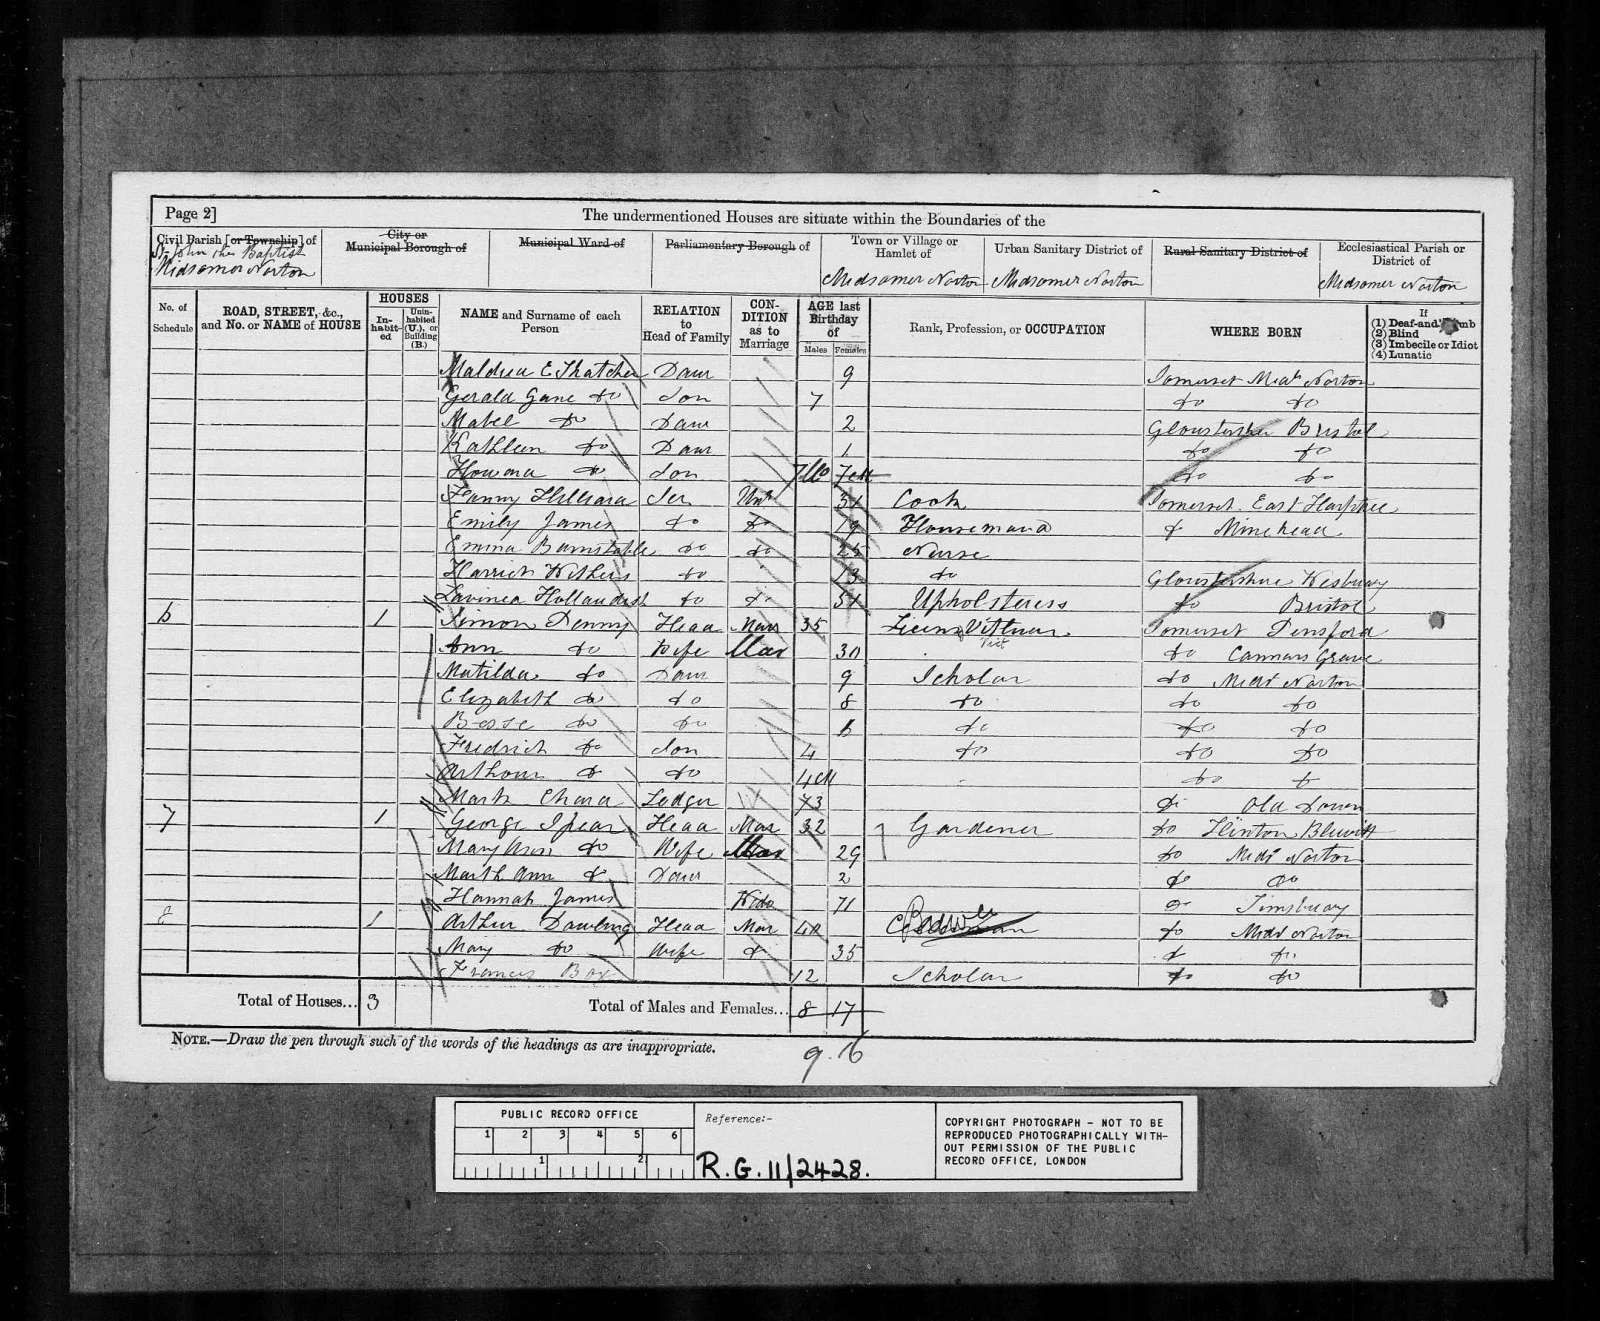 Page 2]
The undermentioned Houses are situate within the Boundaries of the
Civil Parish [or Township] of
St John the Baptist
Midsomer Norton
City or
Municipal Borough of
Municipal Ward of
Parliamentary Borough of
Town or Village or
Hamlet of
Midsomer Norton
Urban Sanitary District of
Midsomer Norton
Rural Sanitary District of
Ecclesiastical Parish or
District of
Midsomer Norton
No. of
Schedule
ROAD, STREET, &c.,
and No. or NAME of HOUSE
HOUSES
In-
habit-
ed
Unin-
habited
(U.), or
Building
(B.)
NAME and Surname of each
Person
RELATION
to
Head of Family
CON-
DITION
as to
Marriage
AGE last
Birthday
of
Males Females
Rank, Profession, or OCCUPATION
WHERE BORN
If
(1) Deaf-and-Dumb
(2) Blind
(3) Imbecile or Idiot
(4) Lunatic
E Thatcher Daur 9 Somerset Mid Norton
Gerald Gane do Son 7 do do
Mabel do Daur 2 Gloustershre Bristol
Kathleen do Daur 1 do do
Howard do Son 7Mo do do
Fanny Hilliard Ser Unm 51 Cook Somerset East Harptree
Emily James do do 19 Housemaid do Minehead
Emma Barnstable do do 25 Nurse
Harriet Withers do 13 do Gloustershire Wesbury
Lavinea Hollandish do do 51 Upholsteress do Bristol
6 1 Simon Denny Head Mar 35 Licens Vittuar Somerset Pensford
Vict
Ann do Wife Mar 30 do Cannars Grave
Matilda do Daur 9 Scholar do Midr Norton
Elizabeth do do 8 do do do
Besse do do 6 do do do
Fredrich do Son 4 do do do
Arthour do do 4M do do
Mark Chard Lodger 73 do Old Down
7 1 George Spear Head Mar 32 Gardener do Hinton Bluwitt
Mary Ann do Wife Mar 29 do Midr Norton
Marth Ann do Daur 2 do do
Hannah James Wido 71 do Timsbury
8 1 Arthur Dowling Head Mar 40 do Midr Norton
Mary do Wife do 35 do do
Francis Box 12 Scholar do do
Total of Houses... 3
Total of Males and Females... 8 17
NOTE.—Draw the pen through such of the words of the headings as are inappropriate.
9.16
PUBLIC RECORD OFFICE
1 2 3 4 5 6
1 2
Reference:-
R.G. 11/2428.
COPYRIGHT PHOTOGRAPH - NOT TO BE
REPRODUCED PHOTOGRAPHICALLY WITH-
OUT PERMISSION OF THE PUBLIC
RECORD OFFICE, LONDON